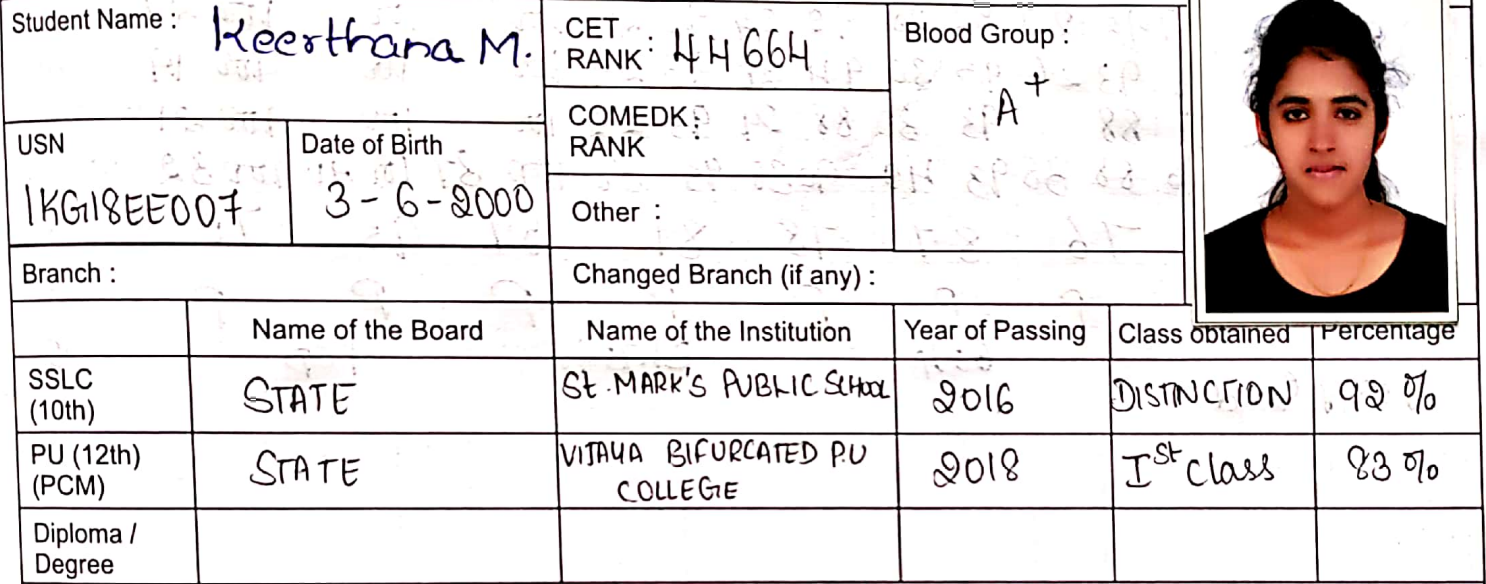 Student Name : Keerthana M.
CET RANK : 44664
Blood Group :
A+
COMEDK RANK :
USN
1KG18EE007
Date of Birth
3-6-2000
Other :
Branch :
Changed Branch (if any) :
Name of the Board Name of the Institution Year of Passing Class obtained Percentage
SSLC (10th) STATE St. MARK'S PUBLIC SCHOOL 2016 DISTINCTION 92 %
PU (12th) (PCM) STATE VIJAYA BIFURCATED P.U COLLEGE 2018 Ist class 83 %
Diploma / Degree